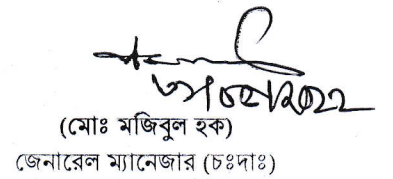 (মোঃ মজিবুল হক)
জেনারেল ম্যানেজার (চঃদাঃ)